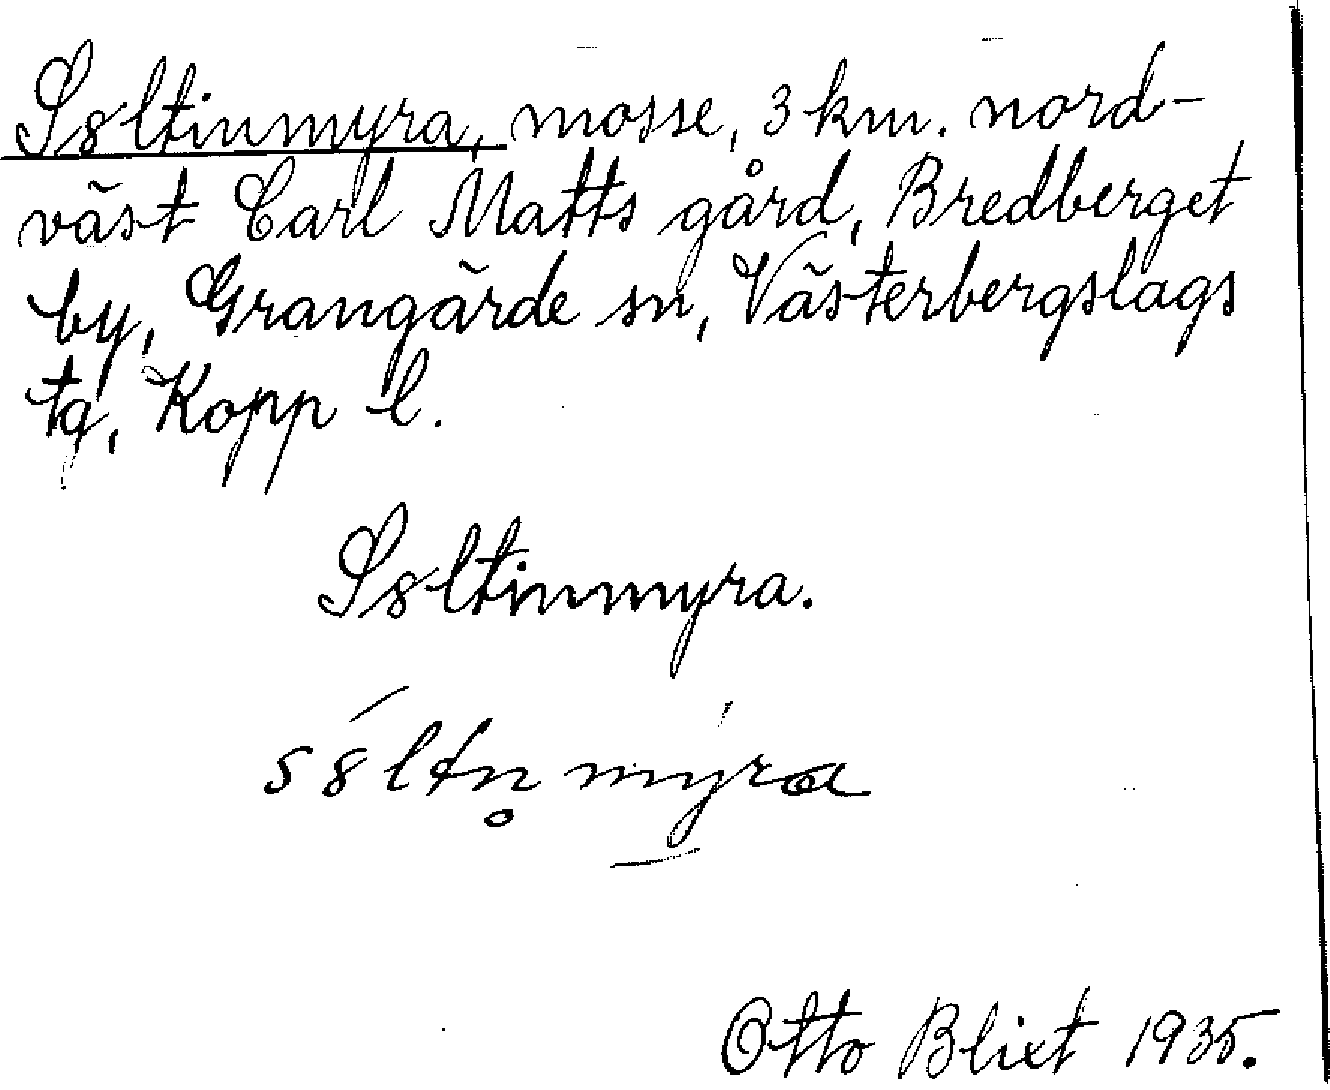 S8ltinmyra, mosse, 3 km. nord-
väst Carl Matts gård, Bredberget
by, Grangärde sn, Västerbergslags
tg, Kopp l.
S8ltinmyra.
s8́ltn̥ mýra
Otto Blixt 1935.